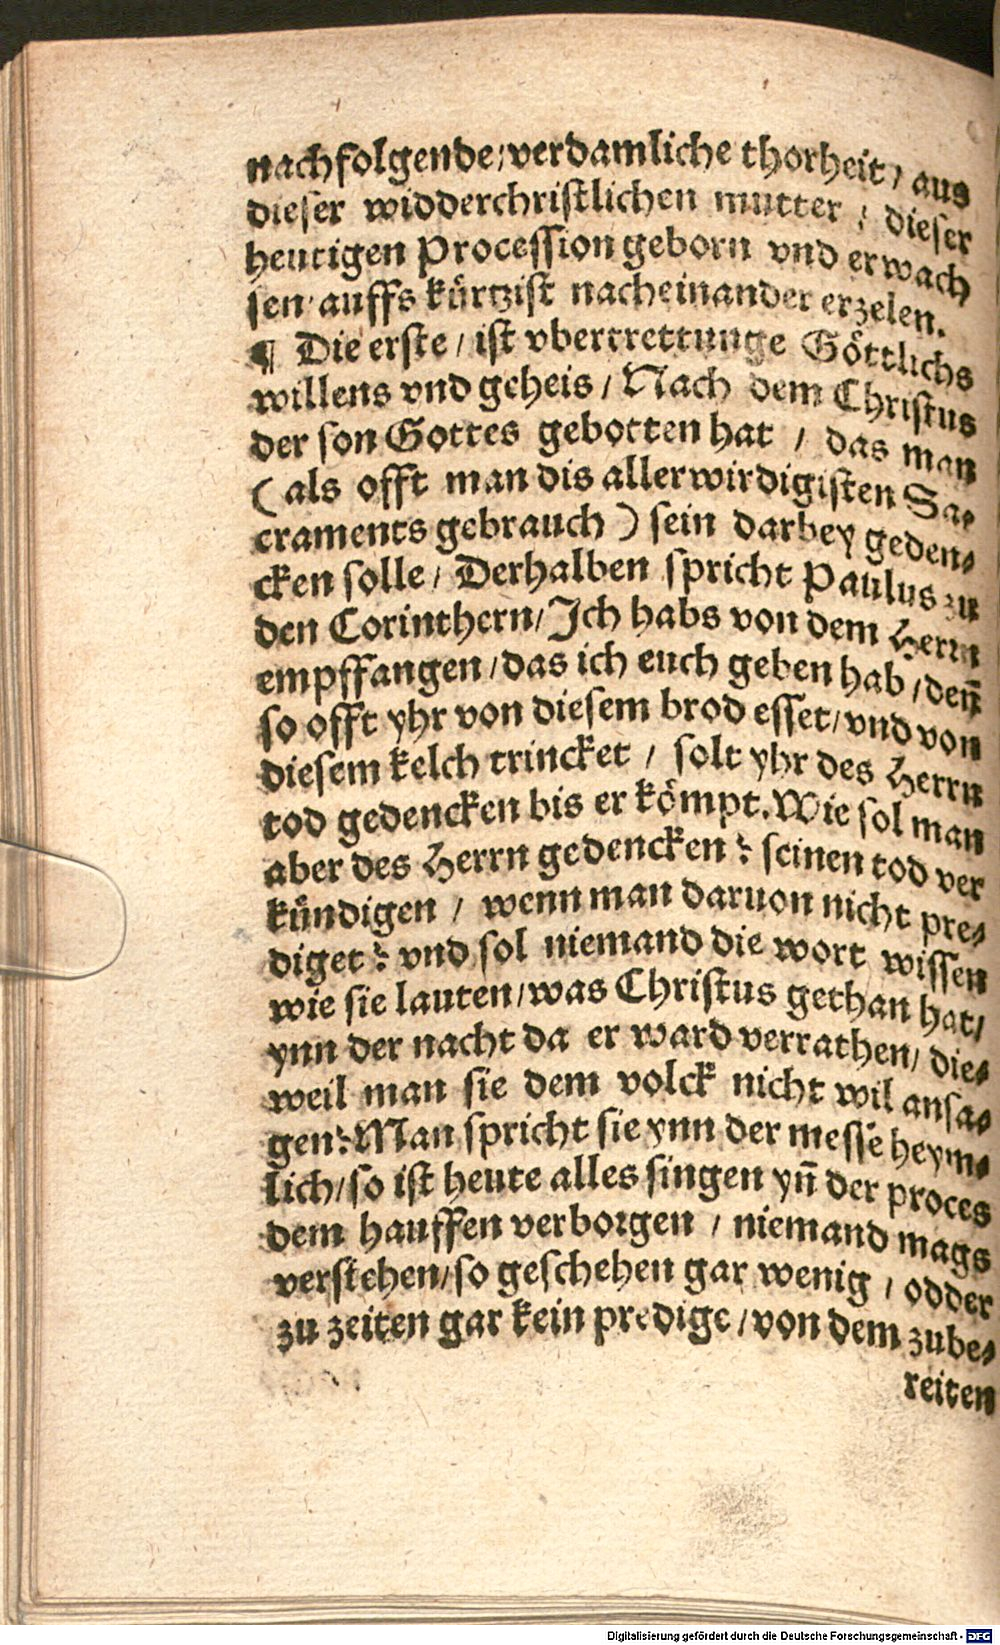 nachfolgende/verdamliche thorheit/ aus
dieser widderchristlichen mutter / dieser
heutigen Procession geborn vnd erwach
sen/auffs kürtzist nacheinander erzelen.
¶ Die erste/ ist vbertrettunge Göttlichs
willens vnd geheis/ Nach dem Christus
der son Gottes gebotten hat / das man
(als offt man dis allerwirdigisten Sa⸗
craments gebrauch) sein darbey geden⸗
cken solle/ Derhalben spricht Paulus zu
den Corinthern/Ich habs von dem Herrn
empffangen/das ich euch geben hab/denn̄
so offt yhr von diesem brod esset/vnd von
diesem kelch trincket / solt yhr des Herrn
tod gedencken bis er kömpt. Wie sol man
aber des Herrn gedencken? seinen tod ver
kündigen / wenn man daruon nicht pre⸗
diget? vnd sol niemand die wort wissen
wie sie lauten/was Christus gethan hat/
ynn der nacht da er ward verrathen/ die⸗
weil man sie dem volck nicht wil ansa⸗
gen? Man spricht sie ynn der messe heym⸗
lich/so ist heute alles singen yn̄ der proces
dem hauffen verborgen / niemand mags
verstehen/so geschehen gar wenig / odder
zu zeiten gar kein predige/von dem zube⸗
reiten
Digitalisierung gefördert durch die Deutsche Forschungsgemeinschaft - DFG